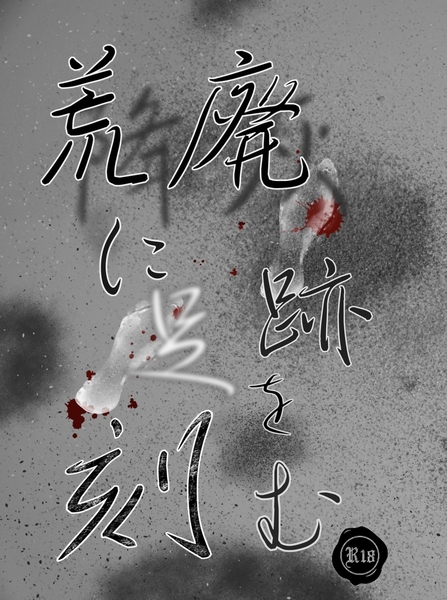 荒廃
に
足跡
を
刻む
R18